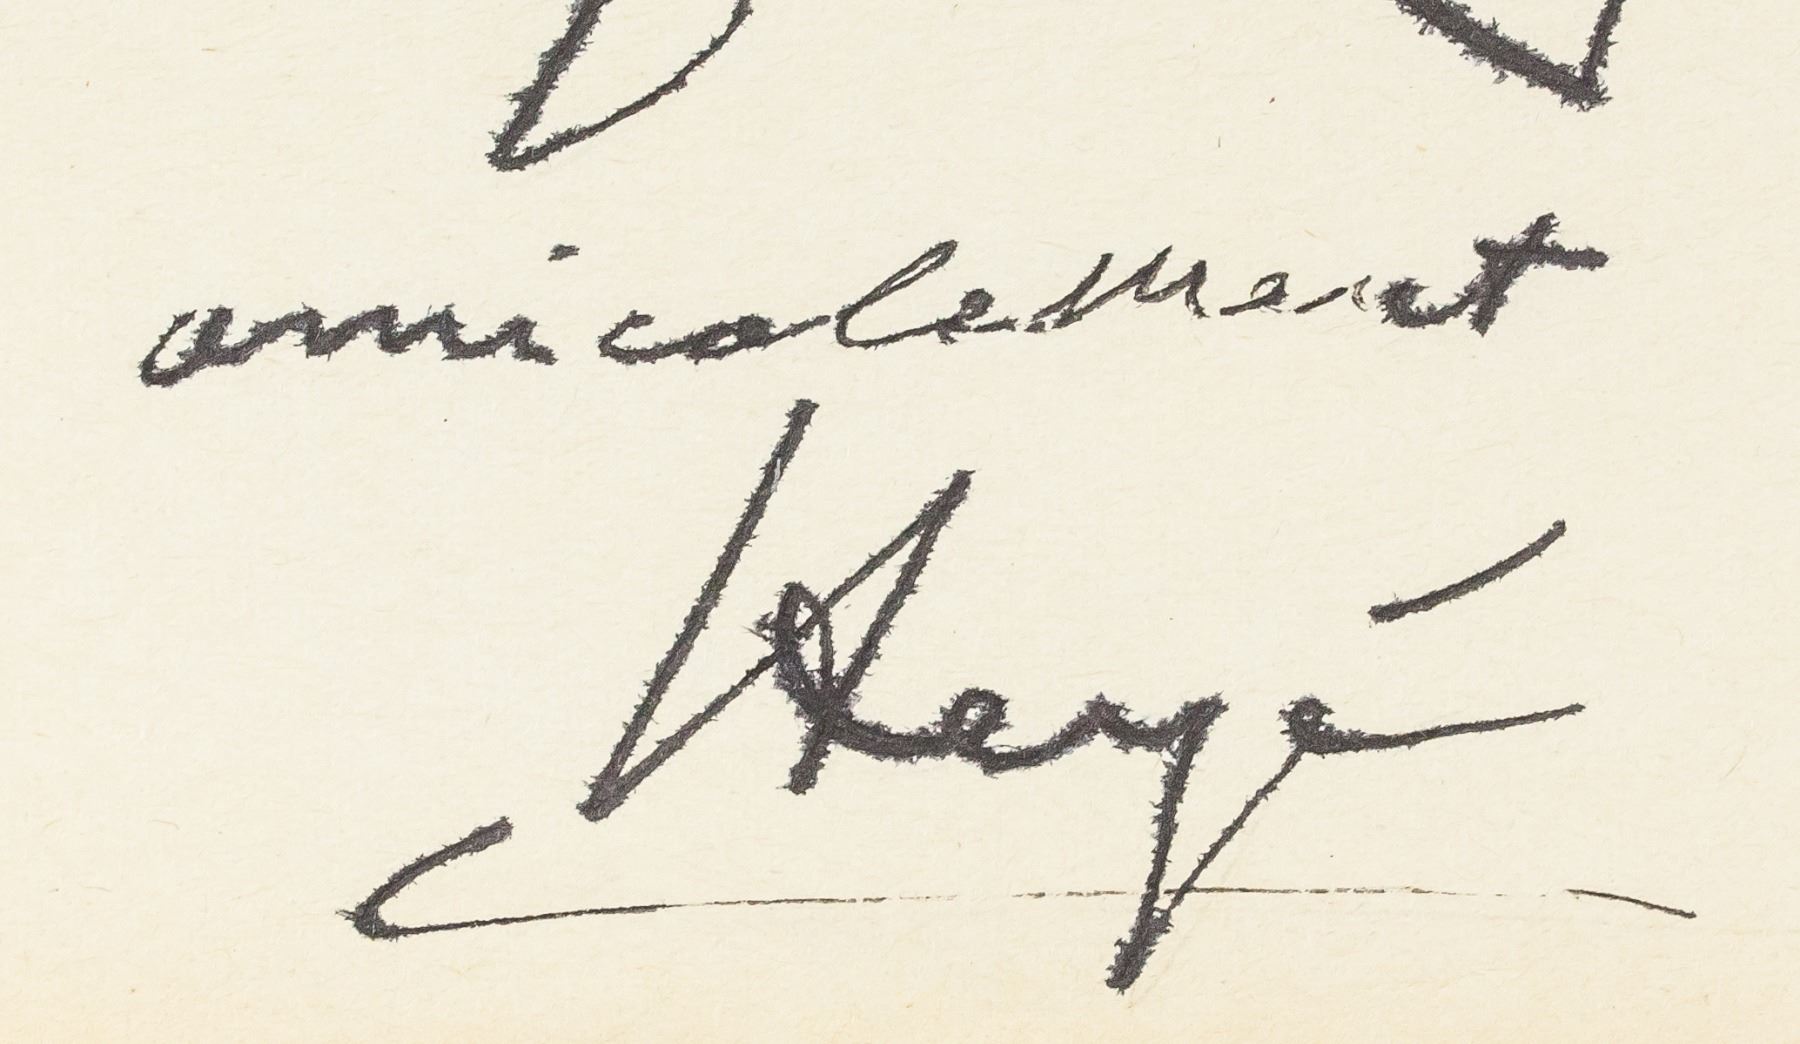 amicalement
Hergé